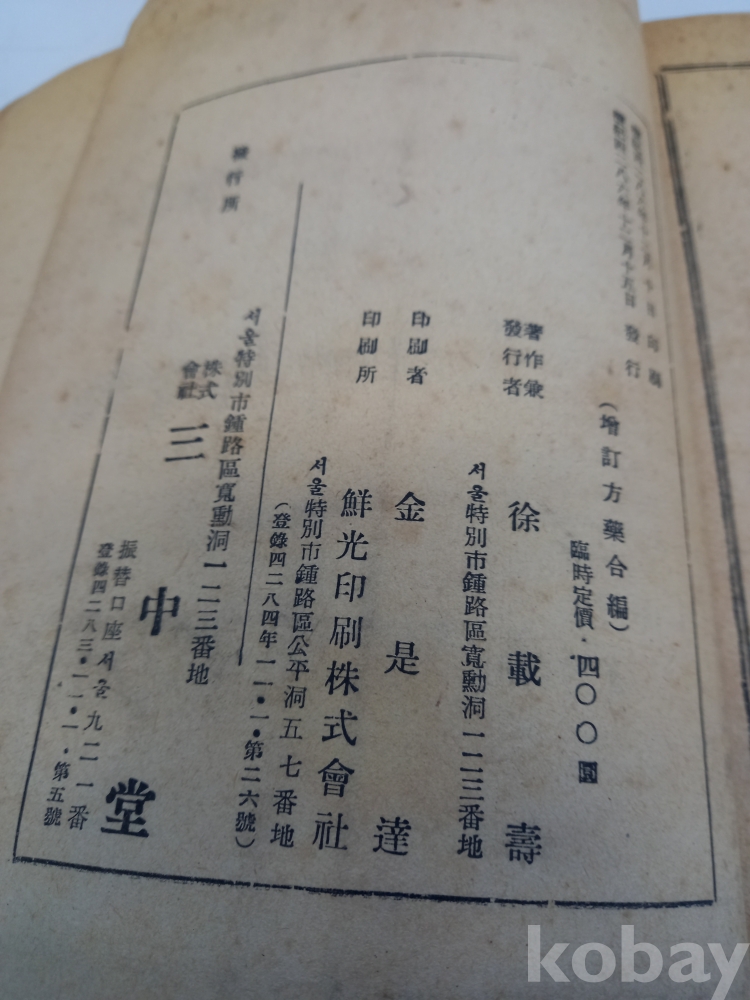 檀紀四二八六年十二月十日 印刷
檀紀四二八六年十二月十五日 發行
(增訂方藥合編)
臨時定價·四〇〇圜
著作兼
發行者
徐載壽
서울特別市鍾路區寬勳洞一二三番地
印刷者
金是達
印刷所
鮮光印刷株式會社
서울特別市鍾路區公平洞五七番地
(登錄四二八四年一一·一·第二六號)
發行所
서울特別市鍾路區寬勳洞一二三番地
株式
會社
三中堂
振替口座서울九二一番
登錄四二八三·一一·一·第五號
kobay